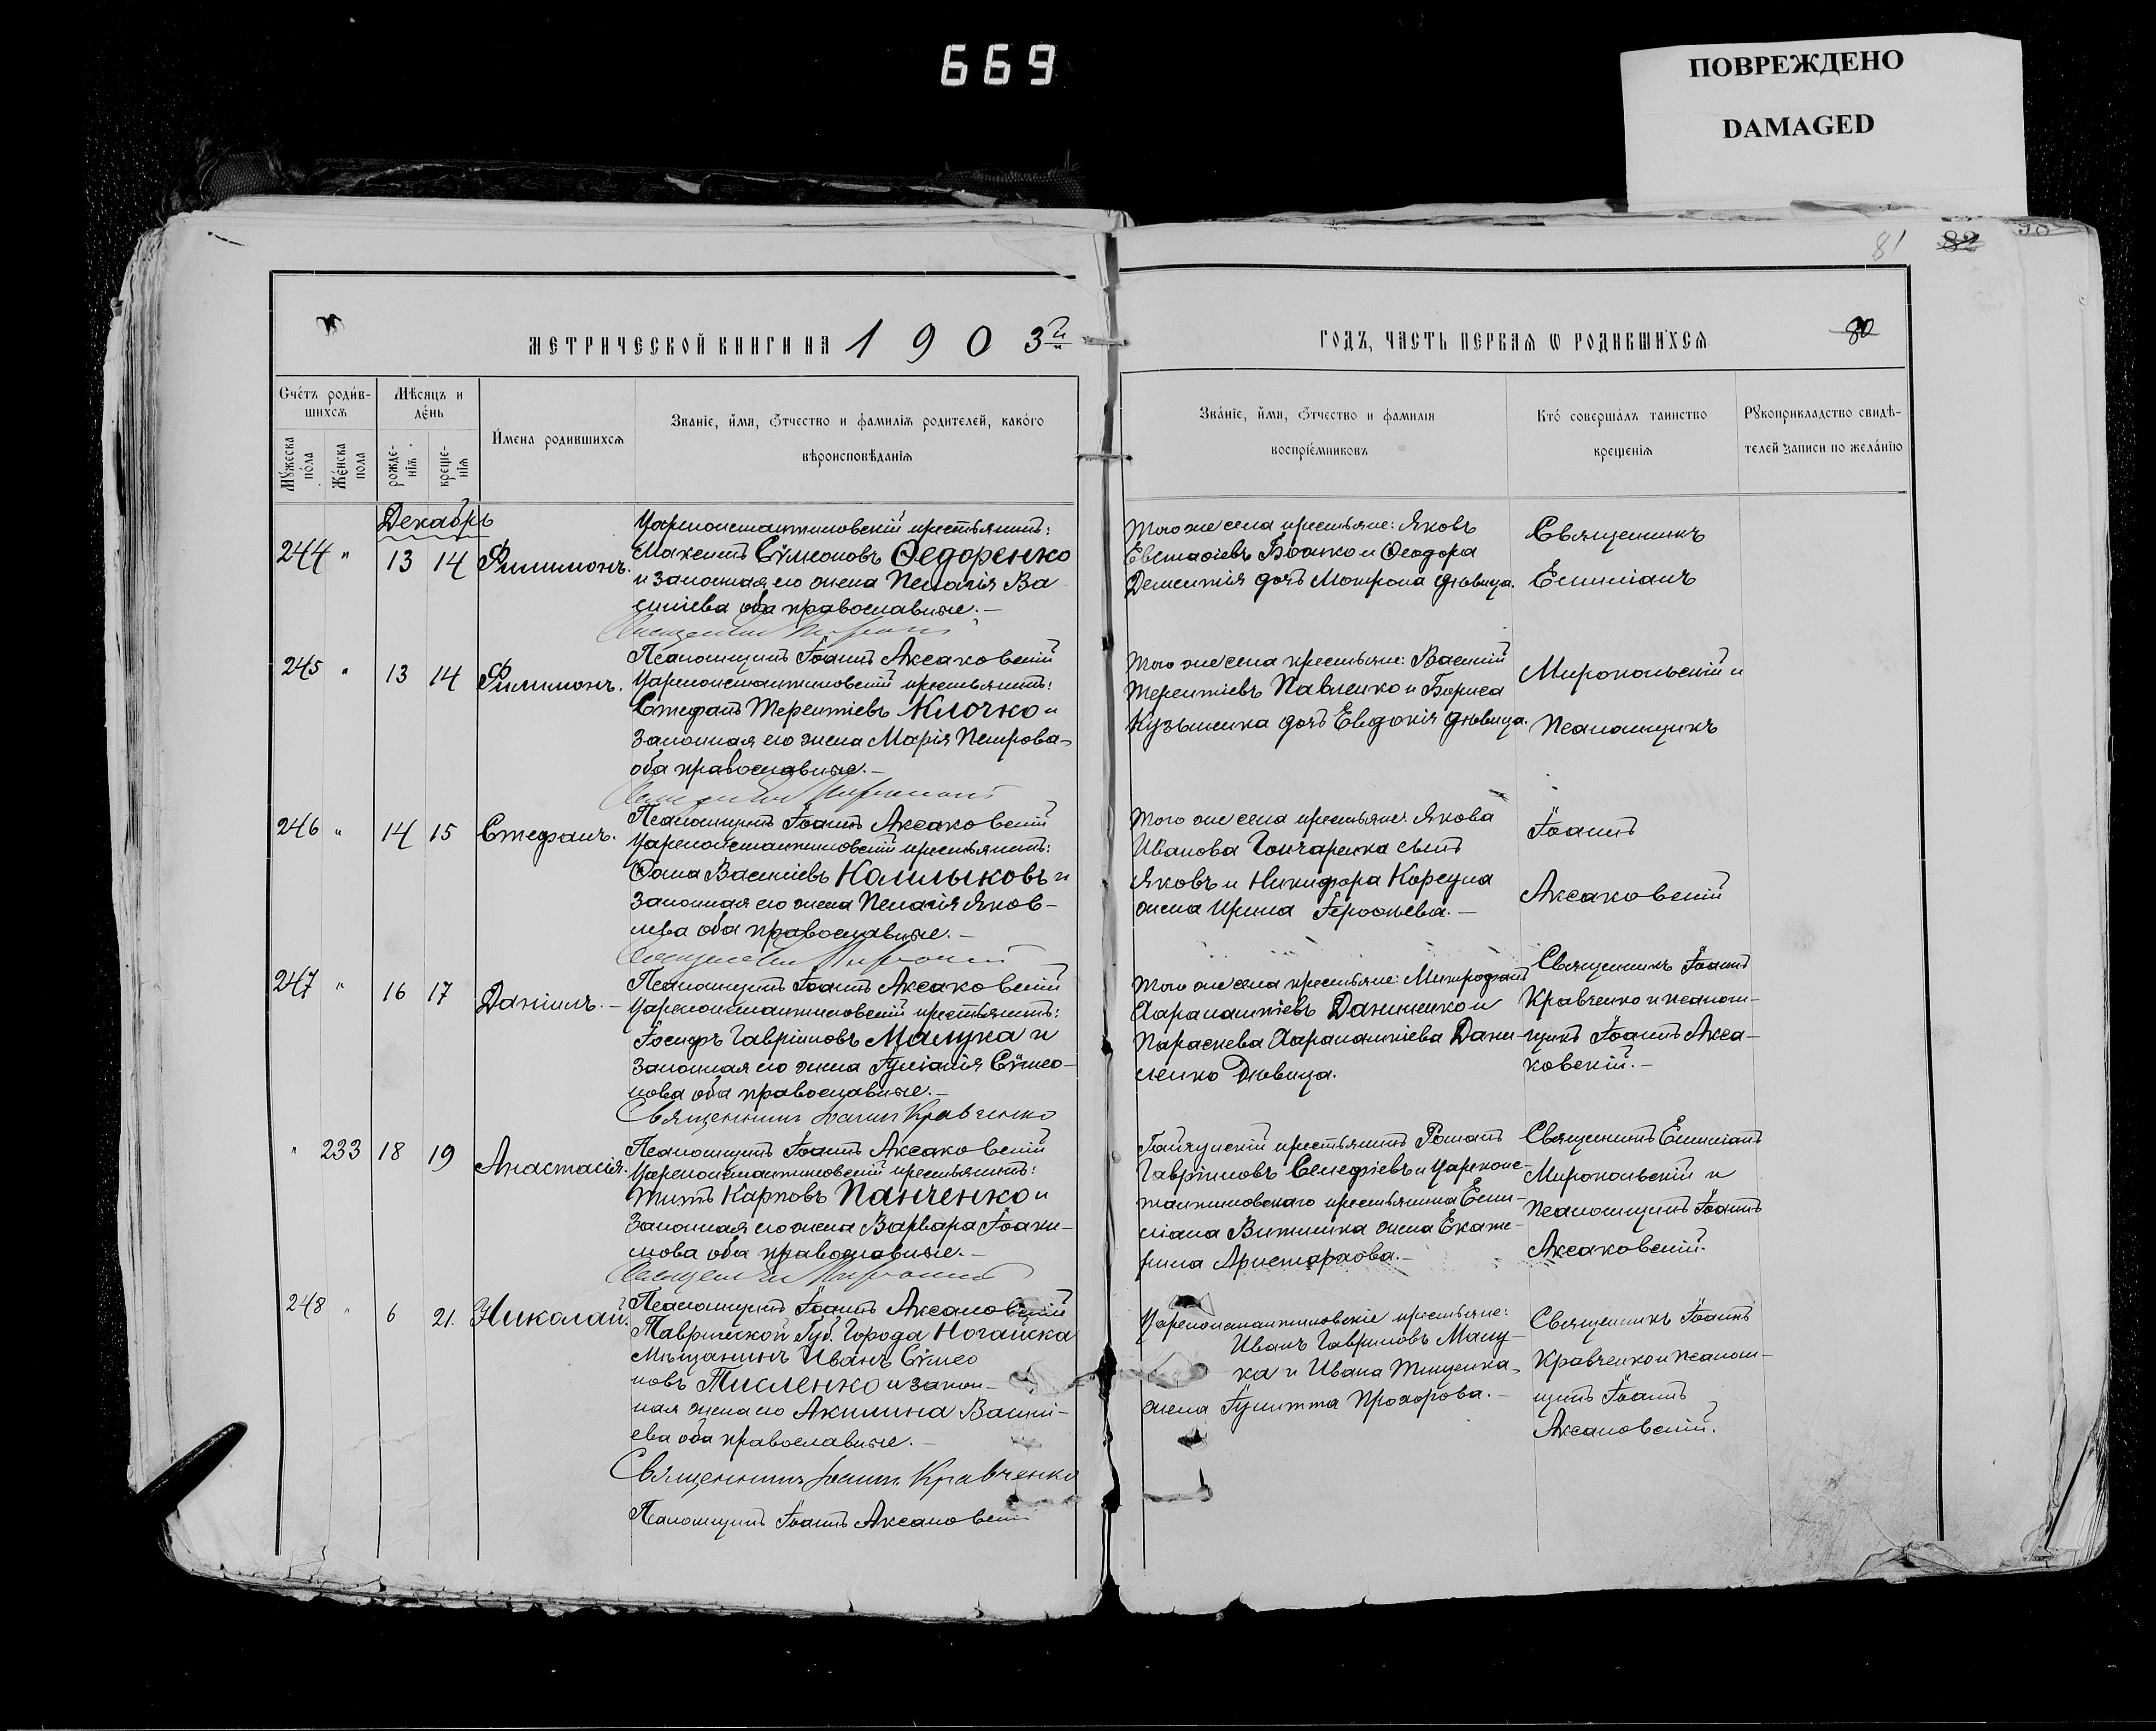 669
ПОВРЕЖДЕНО
DAMAGED
81 82
МЕТРИЧЕСКОЙ КНИГИ НА 1903й
ГОДЪ, ЧАСТЬ ПЕРВАЯ Ѡ РОДИВШИХСЯ
80
Счетъ родившихся
Мѣсяцъ и день
Мужеска пола
Женска пола
рожденія
крещенія
Имена родившихся
Званіе, имя, ѿчество и фамилія родителей, какого
вѣроисповѣданія
Званіе, имя, ѿчество и фамилія
воспріемниковъ
Кто совершалъ таинство
крещенія
Рукоприкладство свидѣ-
телей записи по желанію
Декабрь
244 " 13 14 Филимонъ.
Цареконстантиновскій крестьянинъ:
Максимъ Сѵмеоновъ Ѳедоренко
и законная его жена Пелагія Ва
силіева оба православные.-
Того же села крестьяне: Яковъ
Евстаѳіевъ Божко и Ѳеодора
Дементія дочь Мотрона дѣвица.
Священникъ
Емиліанъ
245 " 13 14 Филимонъ.
Псаломщикъ Іоаннъ Аксаковскій
Цареконстантиновскій крестьянинъ:
Стефанъ Терентіевъ Клочко и
законная его жена Марія Петрова-
оба православные.-
Того же села крестьяне: Василій
Терентіевъ Павленко и Бориса
Кузьменка дочь Евдокія дѣвица.
Миропольскій и
Псаломщикъ
246 " 14 15 Стефанъ.
Псаломщикъ Іоаннъ Аксаковскій
Цареконстантиновскій крестьянинъ:
Ѳома Василіевъ Калмыковъ и
законная его жена Пелагія Яков-
лева оба православные.-
Того же села крестьяне: Якова
Иванова Гончаренка сынъ
Яковъ и Никифора Корсуна
жена Ирина
Іоаннъ
Аксаковскій
247 " 16 17 Даніилъ.-
Псаломщикъ Іоаннъ Аксаковскій
Цареконстантиновскій крестьянинъ:
Іосифъ Гавріиловъ Малука и
законная его жена Іуліанія Сѵмео-
нова оба православные.-
Священникъ Іоаннъ Кравченко
Того же села крестьяне: Митрофанъ
Харалампіевъ Даниленко и
Параскева Харалампіева Дани-
ленко Дѣвица.
Священникъ Іоаннъ
Кравченко и псалом-
щикъ Іоаннъ Акса-
ковскій.-
" 233 18 19 Анастасія.
Псаломщикъ Іоаннъ Аксаковскій
Цареконстантиновскій крестьянинъ:
Титъ Карповъ Панченко и
законная его жена Варвара Іоаки-
мова оба православные.-
Гайчунскій крестьянинъ Романъ
Гавріиловъ Селефіевъ и Цареконс-
тантиновскаго крестьянина Еми-
ліана жена Екате-
рина Аристархова.-
Священникъ Емиліанъ
Миропольскій и
Псаломщикъ Іоаннъ
Аксаковскій.
248 " 6 21. Николай.
Псаломщикъ Іоаннъ Аксаковскій
Таврической Губ. Города Ногайска
Мѣщанинъ Иванъ Сѵмео
новъ Тисленко и закон-
ная жена его Акилина Васил-
ева оба православные.-
Священникъ Іоаннъ Кравченко
Псаломщикъ Іоаннъ Аксаковскій
Цареконстантиновскіе крестьяне:
Иванъ Гавриловъ Малу-
ка и Ивана Тищенка,
жена Іулитта Прохорова.-
Священникъ Іоаннъ
Кравченко и псалом-
щикъ Іоаннъ
Аксаковскій.